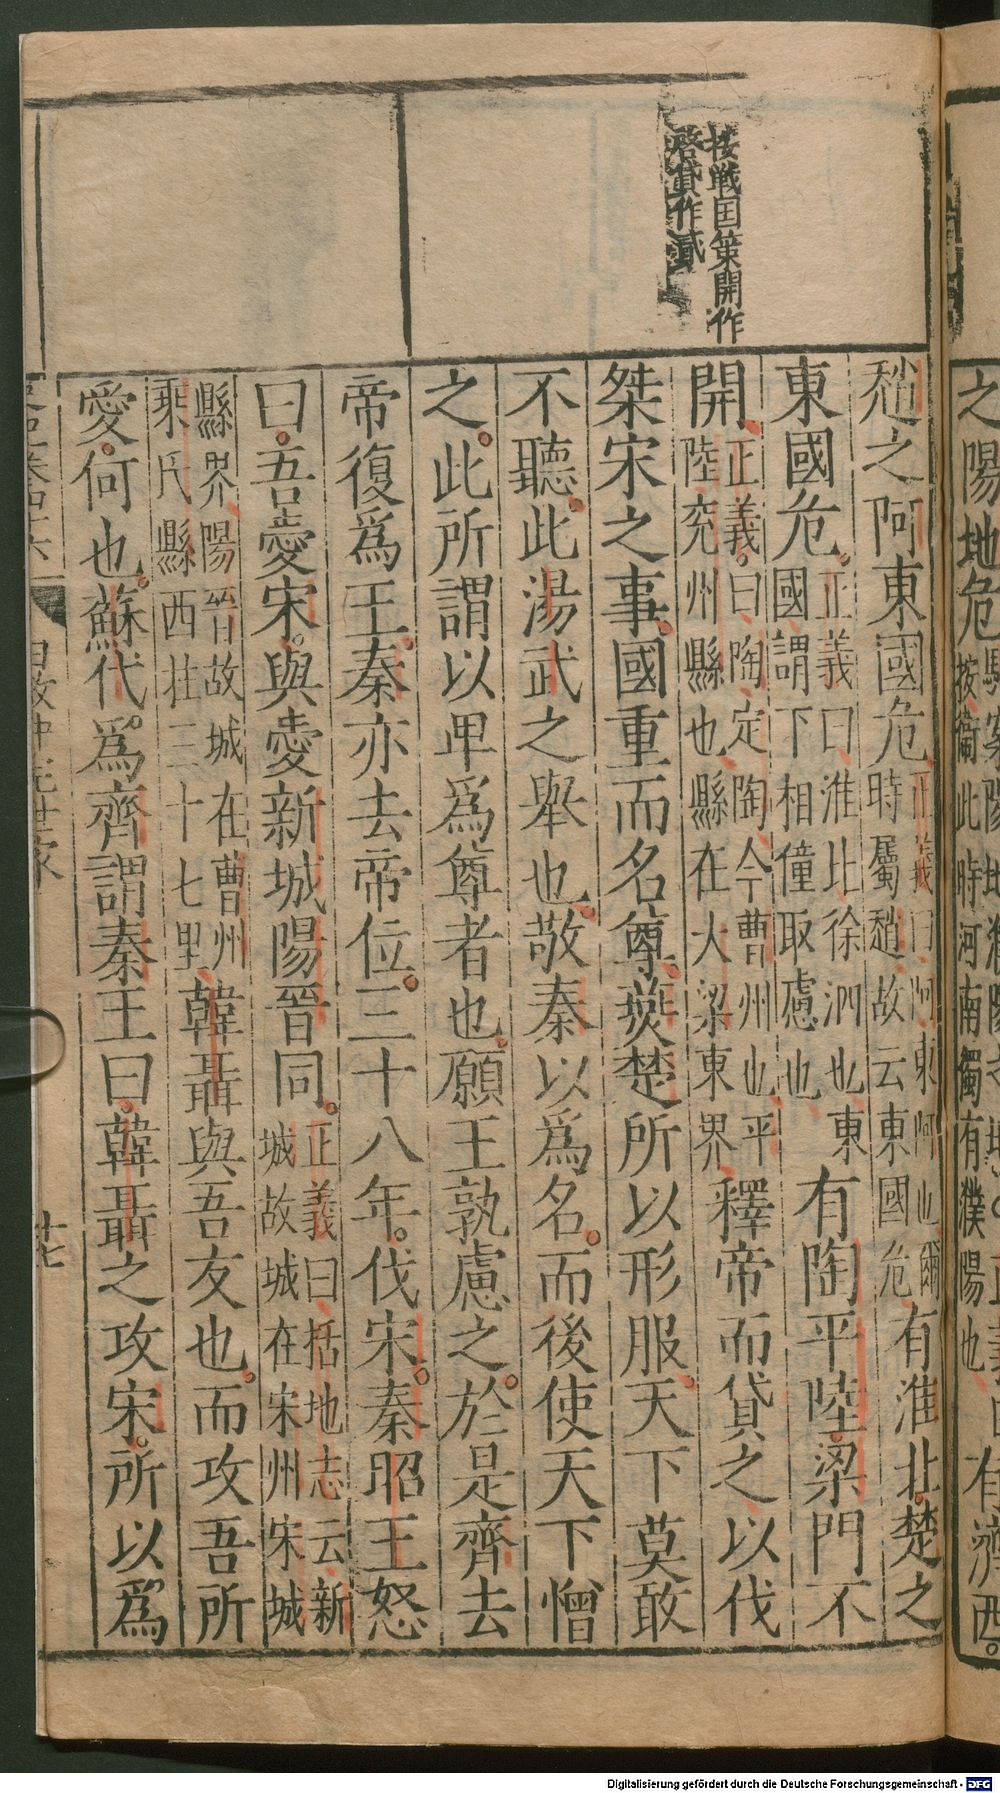 按戰国策開作
啓貸作貳
趙之阿東國危正義曰阿東阿也爾時屬趙故云東國危有淮北楚之
東國危正義曰淮北徐泗也東國謂下相僮取慮也有陶平陸梁門不
開正義曰陶定陶今曹州也平陸兖州縣也縣在大梁東界釋帝而貸之以伐
桀宋之事國重而名尊燕楚所以形服天下莫敢
不聽此湯武之舉也敬秦以爲名而後使天下憎
之此所謂以卑爲尊者也願王孰慮之於是齊去
帝復爲王秦亦去帝位三十八年伐宋秦昭王怒
曰吾愛宋與愛新城陽晉同正義曰括地志云新城故城在宋州宋城
縣界陽晉故城在曹州乘氏縣西北三十七里韓聶與吾友也而攻吾所
愛何也蘇代爲齊謂秦王曰韓聶之攻宋所以爲
史記卷四十六 田敬仲完世家 廿七
之陽地危
按衛此時河南獨有濮陽也
有濟西
Digitalisierung gefördert durch die Deutsche Forschungsgemeinschaft - DFG